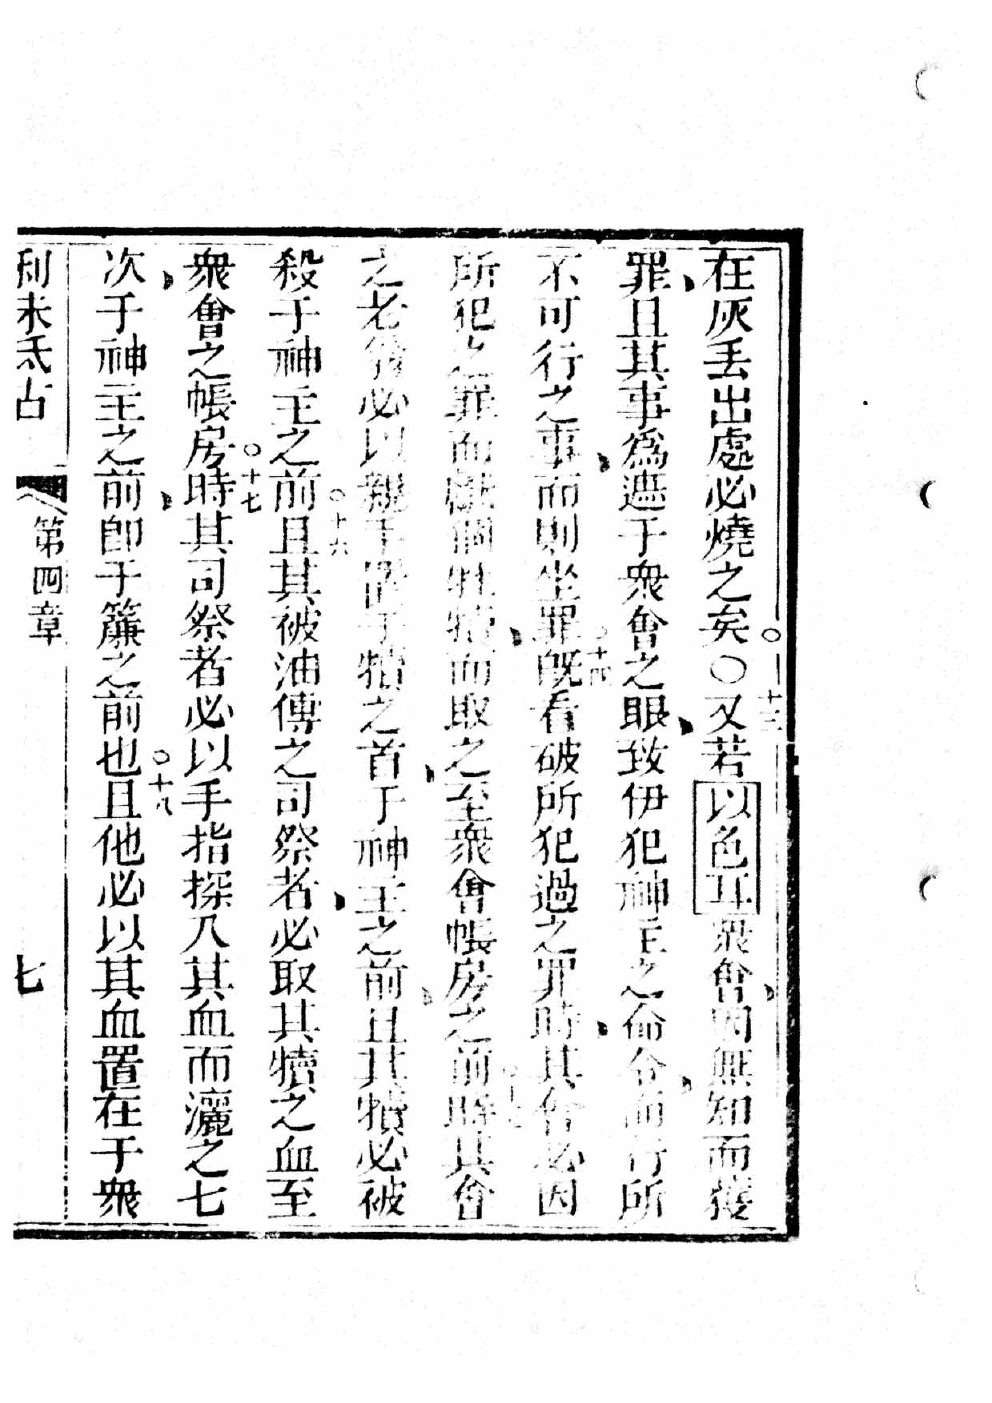 在灰丢出處必燒之矣○又若以色耳衆會因無知而獲
十三
罪且其事爲遮于衆會之眼致伊犯神主之命令而行所
不可行之事而則坐罪旣看破所犯過之罪時其會必因
十四
所犯之罪而獻個牡犢而取之至衆會帳房之前時其會
十五
之老翁必以親手置于犢之首于神主之前且其犢必被
殺于神主之前且其被油傳之司祭者必取其犢之血至
十六
衆會之帳房時其司祭者必以手指探入其血而灑之七
十七
次于神主之前卽于簾之前也且他必以其血置在于衆
十八
利未氏古
第四章
七